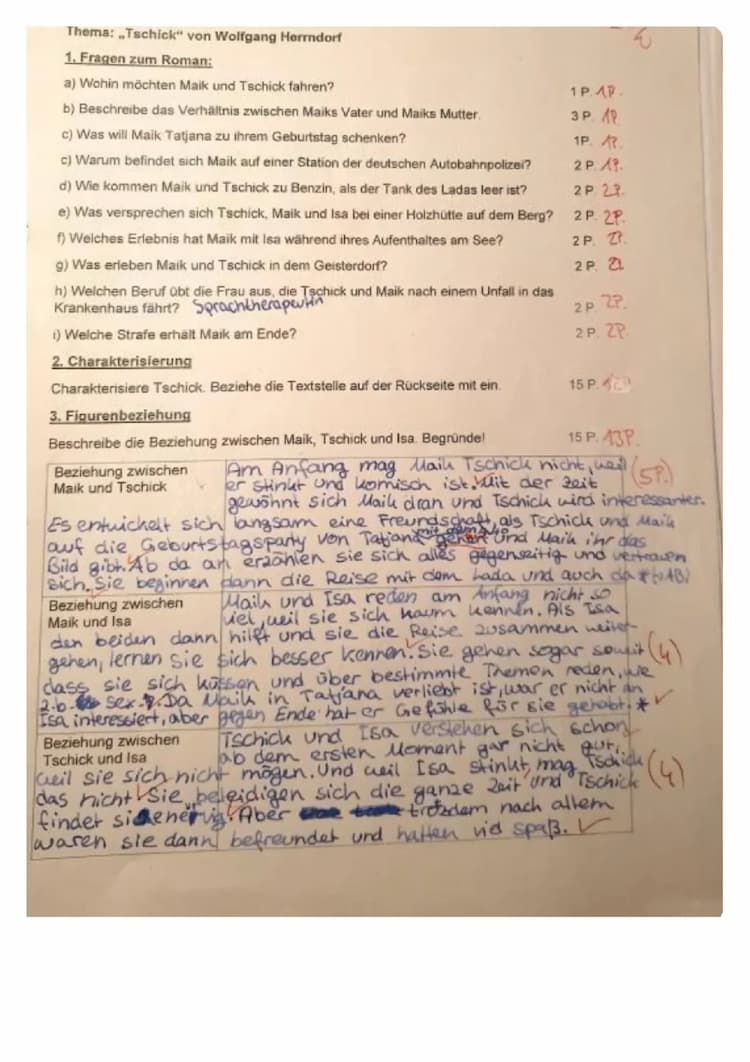 Thema: „Tschick" von Wolfgang Herrndorf
1. Fragen zum Roman:
a) Wohin möchten Maik und Tschick fahren? 1 P. 1P.
b) Beschreibe das Verhältnis zwischen Maiks Vater und Maiks Mutter. 3 P. 1P
c) Was will Maik Tatjana zu ihrem Geburtstag schenken? 1P.
c) Warum befindet sich Maik auf einer Station der deutschen Autobahnpolizei? 2 P. 1P.
d) Wie kommen Maik und Tschick zu Benzin, als der Tank des Ladas leer ist? 2 P. 2P.
e) Was versprechen sich Tschick, Maik und Isa bei einer Holzhütte auf dem Berg? 2 P. 2P.
f) Welches Erlebnis hat Maik mit Isa während ihres Aufenthaltes am See? 2 P. 2P.
g) Was erleben Maik und Tschick in dem Geisterdorf? 2 P.
h) Welchen Beruf übt die Frau aus, die Tschick und Maik nach einem Unfall in das
Krankenhaus fährt? Sprachtherapeutin 2 P. 2P.
i) Welche Strafe erhält Maik am Ende? 2 P. 2P.
2. Charakterisierung
Charakterisiere Tschick. Beziehe die Textstelle auf der Rückseite mit ein. 15 P.
3. Figurenbeziehung
Beschreibe die Beziehung zwischen Maik, Tschick und Isa. Begründe! 15 P. 13P.
Beziehung zwischen Am Anfang mag Maik Tschick nicht, weil (5P.)
Maik und Tschick er stinkt und komisch ist. Mit der Zeit
gewöhnt sich Maik dran und Tschick wird interessanter.
Es entwickelt sich langsam eine Freundschaft, als Tschick und Maik
auf die Geburtstagsparty von Tatjana mit dem gehen und Maik ihr das
Bild gibt. Ab da an erzählen sie sich alles gegenseitig und vertrauen
sich. Sie beginnen dann die Reise mit dem Lada und auch da
Beziehung zwischen Maik und Isa reden am Anfang nicht so
Maik und Isa viel, weil sie sich kaum kennen. Als Isa
den beiden dann hilft und sie die Reise zusammen weiter-
gehen, lernen sie sich besser kennen. Sie gehen sogar soweit (4)
dass sie sich küssen und über bestimmte Themen reden, wie
z.b. Sex. Da Maik in Tatjana verliebt ist, war er nicht an
Isa interessiert, aber gegen Ende hat er Gefühle für sie gehabt. *
Beziehung zwischen Tschick und Isa verstehen sich schon
Tschick und Isa ab dem ersten Moment gar nicht gut,
weil sie sich nicht mögen. Und weil Isa stinkt, mag Tschick (4)
das nicht. Sie beleidigen sich die ganze Zeit und Tschick
findet sie nervig. Aber trotzdem nach allem
waren sie dann befreundet und hatten viel spaß.